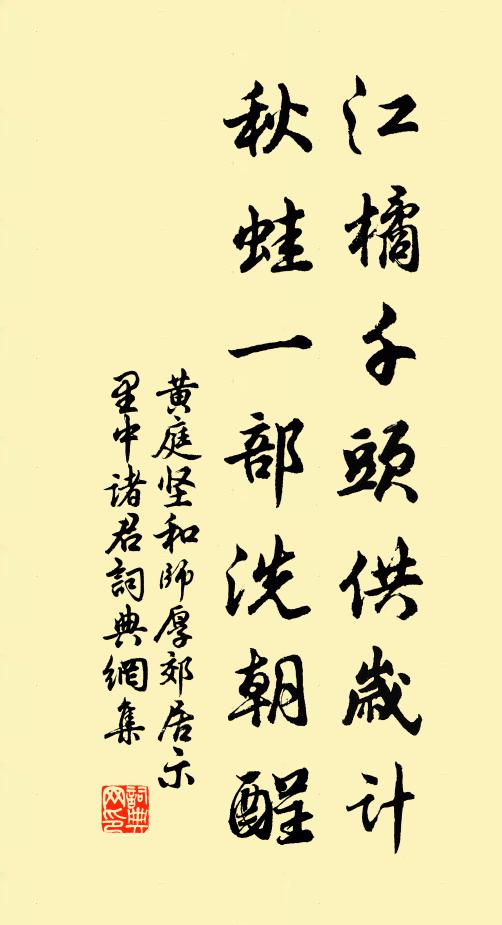 江橘千頭供歲计
秋蛙一部洗朝醒
黄庭坚和師厚郊居示
里中诸君詞典網集
詞典网印